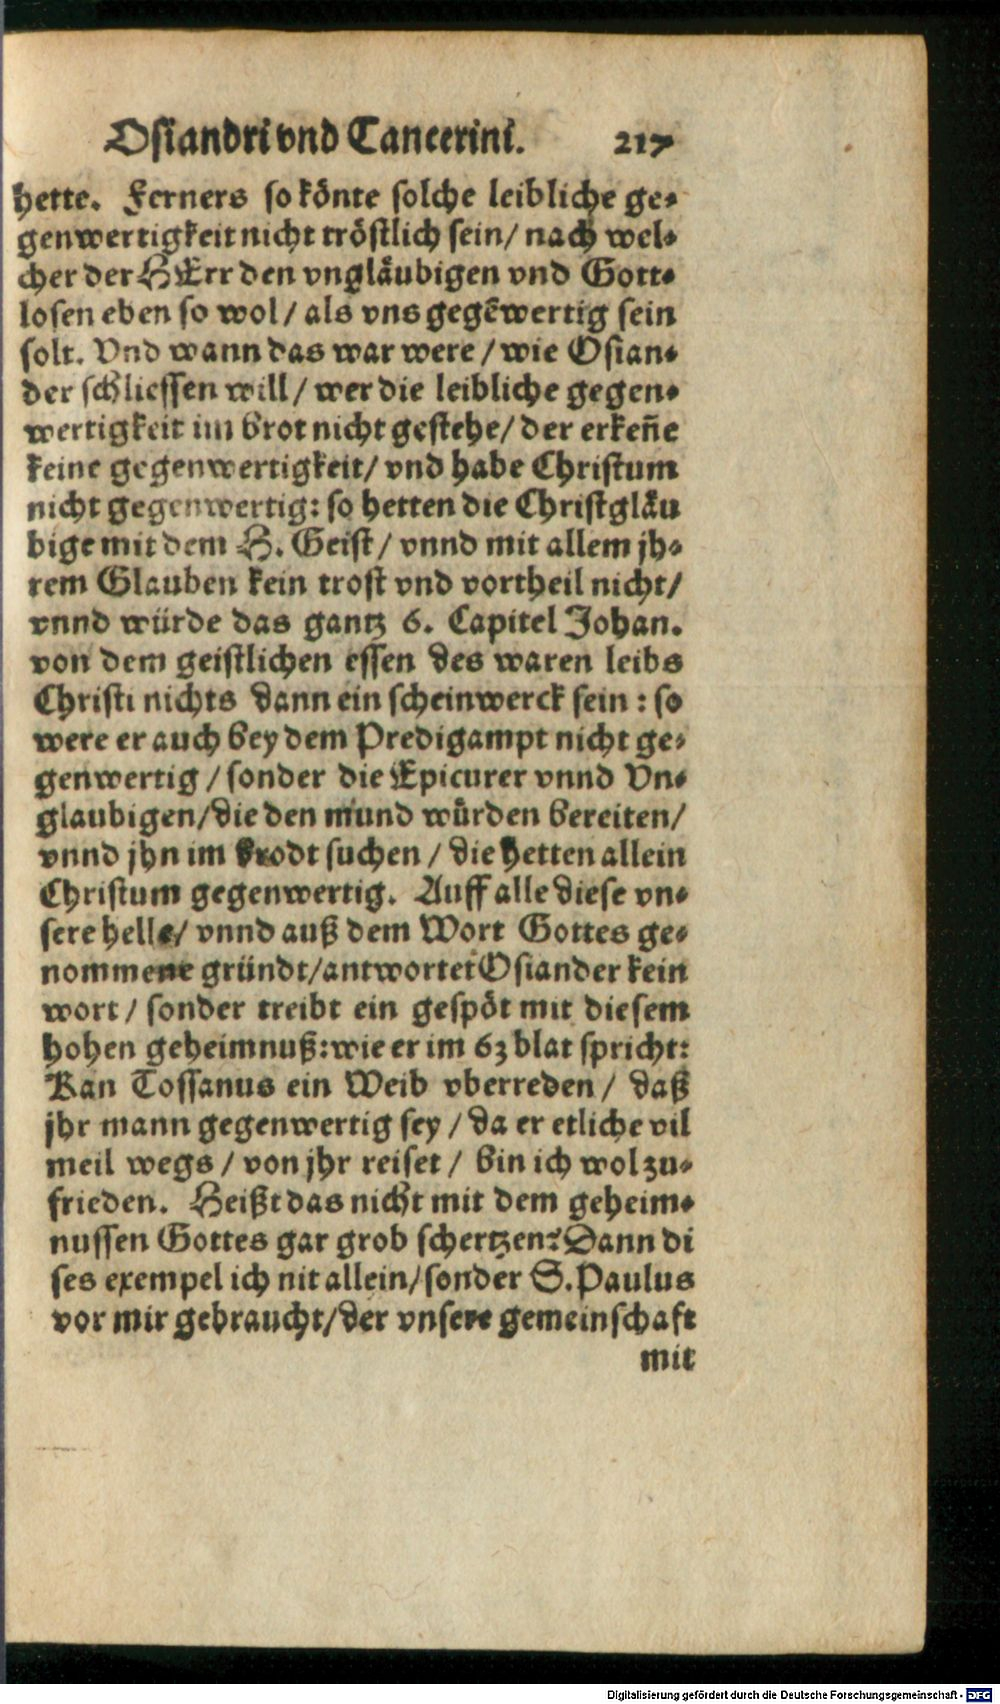 Osiandri vnd Cancerini. 217
hette. Ferners so könte solche leibliche ge-
genwertigkeit nicht tröstlich sein/ nach wel-
cher der HErr den vngläubigen vnd Gott-
losen eben so wol/ als vns gegēwertig sein
solt. Vnd wann das war were/ wie Osian-
der schliessen will/ wer die leibliche gegen-
wertigkeit im brot nicht gestehe/ der erkeñe
keine gegenwertigkeit/ vnd habe Christum
nicht gegenwertig: so hetten die Christgläu
bige mit dem H. Geist/ vnnd mit allem jh-
rem Glauben kein trost vnd vortheil nicht/
vnnd würde das gantz 6. Capitel Johan.
von dem geistlichen essen des waren leibs
Christi nichts dann ein scheinwerck sein: so
were er auch bey dem Predigampt nicht ge-
genwertig/ sonder die Epicurer vnnd Vn-
glaubigen/ die den mund würden bereiten/
vnnd jhn im brodt suchen/ die hetten allein
Christum gegenwertig. Auff alle diese vn-
sere helle/ vnnd auß dem Wort Gottes ge-
nommene gründt/ antwortet Osiander kein
wort/ sonder treibt ein gespöt mit diesem
hohen geheimnuß: wie er im 63 blat spricht:
Kan Tossanus ein Weib vberreden/ daß
jhr mann gegenwertig sey/ da er etliche vil
meil wegs/ von jhr reiset/ bin ich wol zu-
frieden. Heißt das nicht mit dem geheim-
nussen Gottes gar grob schertzen? Dann di
ses exempel ich nit allein/ sonder S. Paulus
vor mir gebraucht/ der vnsere gemeinschaft
mit
Digitalisierung gefördert durch die Deutsche Forschungsgemeinschaft - DFG